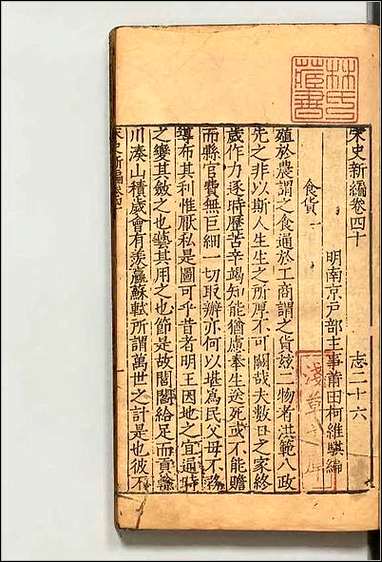 宋史新編卷四十 志二十六
明南京戶部主事莆田柯維騏編
食貨一
殖於農謂之食通於工商謂之貨茲二物者洪範八政
先之非以斯人生生之所厚不可闕哉夫數口之家終
歲作力逐時歷苦辛竭知能猶慮奉生送死或不能贍
而縣官費無巨細一切取辦亦何以堪為民父毋不務
導布其利惟厭私是圖可乎昔者明王因地之宜適時
之變其斂之也藝其用之也節是故閭閻給足而貢輸
川湊山積歲會有羨贏蘇軾所謂萬世之計是也彼不
宋史新編卷四十
林氏藏書
淺草